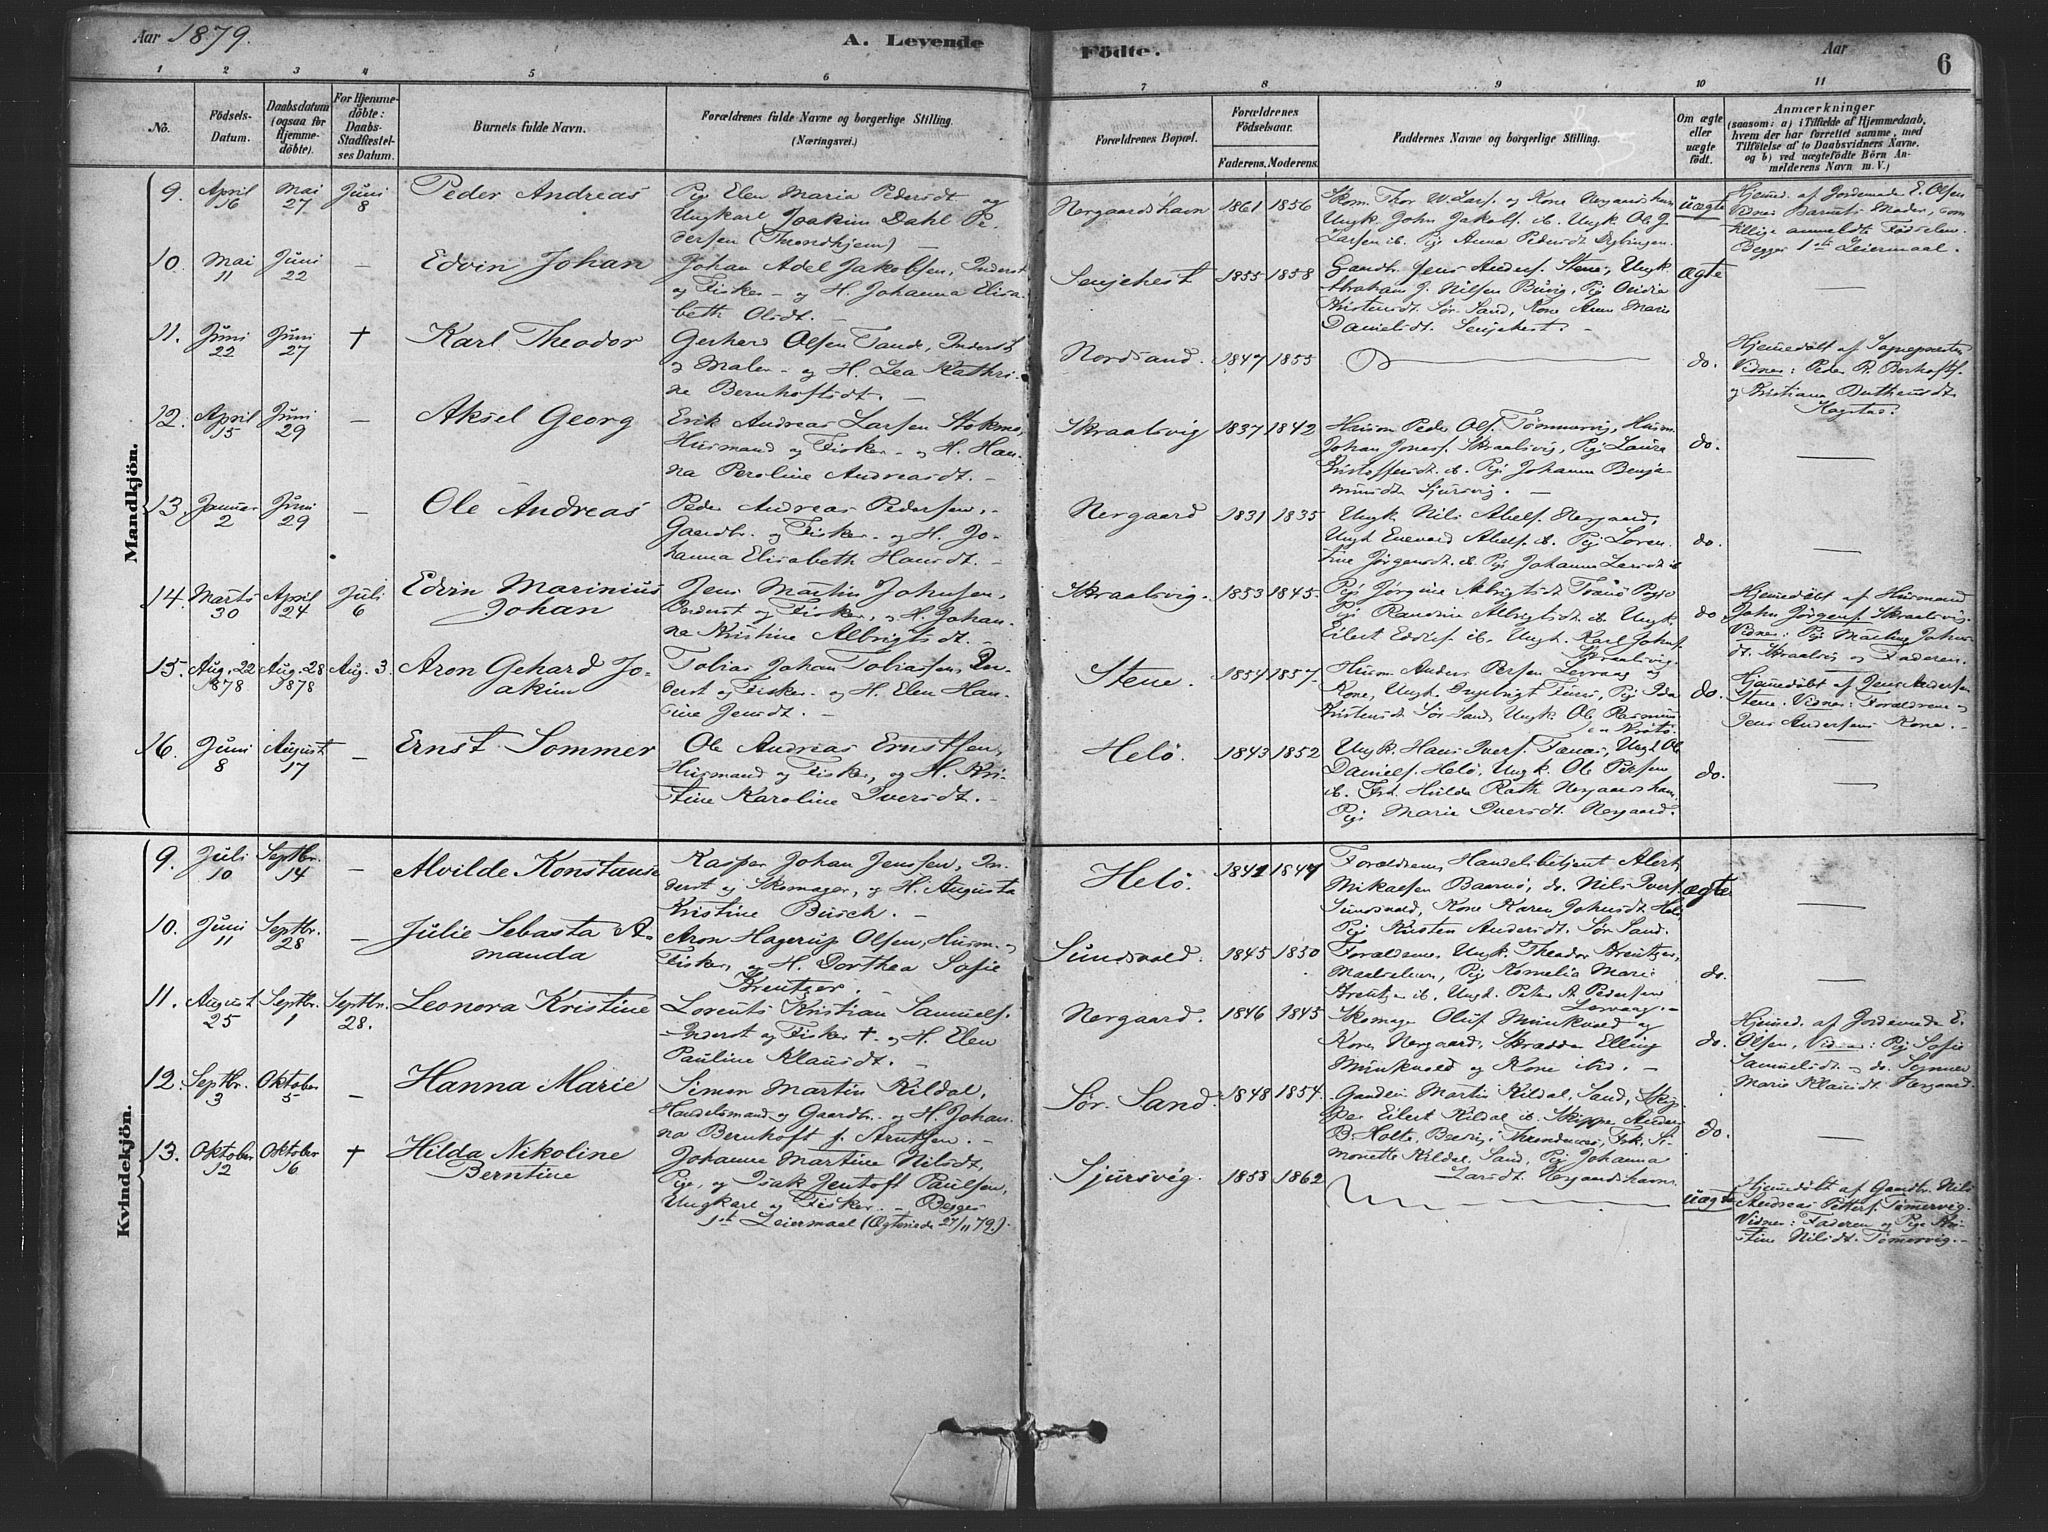 Aar 1879.
A. Levende
Födte.
Aar
6
1 2 3 4 5 6 7 8 9 10 11
No.
Födsels-
Datum.
Daabsdatum
(ogsaa for
Hjemme-
döbte).
For Hjemme-
döbte:
Daabs-
Stadfæstel-
ses Datum.
Barnets fulde Navn.
Forældrenes fulde Navne og borgerlige Stilling.
(Næringsvei.)
Forældrenes Bopæl.
Forældrenes
Födselsaar.
Faderens. Moderens.
Faddernes Navne og borgerlige Stilling.
Om ægte
eller
uægte
födt.
Anmærkninger
(saasom: a) i Tilfælde af Hjemmedaab,
hvem der har forrettet samme, med
Tilföielse af to Daabsvidners Navne,
og b) ved uægtefödte Börn An-
melderens Navn m. V.)
Mandkjön.
9. April 16 Mai 27 Juni 8 Peder Andreas
Pige Elen Maria Pedersdt og
Ungkarl Joakim Dahl Pe-
dersen (Throndhjem) –
Nergaardshavn 1861 1856
Larsen ib. Pige Anna Pedersdt
uægte
Hjemd. af Jordemoder E. Olsen
Vidner Barnets Moder, som
tillige anmeldte Fødselen.
Begges 1ste Leiermaal.
10. Mai 11 Juni 22 – Edvin Johan
Johan Adel Jakobsen, Inderst
og Fisker – og H. Johanna Elisa-
beth Olsdt. –
Senjehest 1855 1858
Gaardbr. Jens Anders. Stene, Ungk.
Abrahan J. Nilsen Buvig, Pige
Kristensdt Sør. Sand, Kone Anne Marie
Danielsdt Senjehest. –
ægte –
11. Juni 22 Juni 27 † Karl Theodor
Gerhard Olsen Tande, Inderst
og Maler – og H. Lea Kathri-
ne Bernhoftsdt. –
Nordsand. 1847 1855
do.
Hjemmedøbt af Sognepresten
Vidner: Peder R. Bernhoft
og Kristiana
12. April 15 Juni 29 – Aksel Georg
Erik Andreas Larsen Stokmo,
Husmand og Fisker – og H. Han-
na Peroline Andreasdt. –
Skraalsvig 1837 1842
Husm Peder Ols. Tømmervig, Husm
Johan Jonas. Skraalsvig, Pige Laura
Kristoffersdt ib. Pige Johanna Benja-
minsdt Sjursvig. –
do. –
13. Januar 2 Juni 29 – Ole Andreas
Peder Andreas Pedersen, –
Gaardbr. og Fisker – og H. Jo-
hanna Elisabeth Hansdt. –
Nergaard 1831 1835
Ungk Nils Abels. Nergaard,
Ungk Enevold Abels. ib. Pige Loren-
tine Jørgensdt. ib. Pige Johanna Larsdt ib
do. –
14. Marts 30 April 24 Juli 6 Edvin Marinius
Johan
Jens Martin Johnsen,
Inderst og Fisker, og H. Johan-
ne Kristine Albrigtsdt. –
Skraalsvig. 1853 1845
Pige Jørgine Albrigtsdt
Pige Randine Albrigtsdt ib. Ungk
Eilert ib. Ungk. Karl Johns.
Skraalsvig. –
do
Hjemmedøbt af Husmand
John Jørgens. Skraalsvig.
Vidner: Pige
dt. Skraalsvig og Faderen.
15. Aug. 22 1878 Aug. 28 1878 Aug. 3. Aron Gehard Jo-
akim
Tobias Johan Tobiassen, In-
derst og Fisker – og H. Elen Han-
tine Jensdt. –
Stene. 1854 1857
Husm Anders Persen Lervaag og
Kone, Ungk. Ingebrigt
Kristensdt Sør Sand, Ungk. Ole Rasmus
do.
Hjemmedøbt af Jens Andersen
Stene. Vidner: Forældrene og
Jens Andersens Kone. –
16. Juni 8 August 17 – Ernst Sommer
Ole Andreas Ernstsen,
Husmand og Fisker, og H. Kri-
stine Karoline Iversdt. –
Helø. 1843 1852
Ungk. Hans Ivers. Ungk Ole
Daniels. Helø, Ungk. Ole Persen
ib. Frk Hilda Rath Nergaardshavn.
Pige Marie Iversdt Nergaard.
do. –
Kvindekjön.
9. Juli 10 Septbr. 14 – Alvilde Konstanse
Kasper Johan Jenssen, In-
derst og Skomager, og H. Augusta
Kristine Busch. –
Helø. 1841 1844
Forældrene, Handelsbetjent Albert
Mikalsen do. Nils Ivers.
Sundsvold, Kone Karen Johnsdt. Helø
Pige Kristen Andersdt. Sør. Sand.
ægte –
10. Juni 11 Septbr. 28 – Julie Sebasta A-
manda
Aron Hagerup Olsen, Husm. og
Fisker, og H. Dorthea Sofie
Kreutzer. –
Sundsvold. 1845 1850
Forældrene, Ungk Theodor Kreutzer,
Pige Kornelia Marie
Kreutzer ib. Ungk. Peter A. Pedersen
Lervaag. –
do. –
11. August 25 Septbr. 1 Septbr. 28. Leonora Kristine
Lorents Kristian Samuels.
Inderst og Fisker †. og H. Elen
Pauline Klausdt. –
Nergaard. 1846 1845
Skomager Oluf Munkvold og
Kone Nergaard, Skrædder Elling
Munkvold og Kone ibd. –
do.
Hjemd. af Jordemoder E.
Olsen, Vidner: Pige Sofie
Samuelsdt – do.
Marie Klausdt Nergaard.
12. Septbr. 3 Oktober 5 – Hanna Marie
Simon Martin Kildal,
Handelsmand og Gaardbr. og H. Johan-
na Bernhoft f. Arntzen. –
Sør. Sand. 1848 1854
Gaardeier Martin Kildal, Sand, Skip-
per Eilert Kildal ib. Skipper
B. Holte, Trondenæs, Frk. Si-
monette Kildal, Sand, Pige Johanna
Larsdt Nergaardshavn.
do. –
13. Oktober 12 Oktober 16 † Hilda Nikoline
Berntine
Johanne Martine Nilsdt,
Pige, og Isak Jentoft Paulsen,
Ungkarl og Fisker. – Begges
1ste Leiermaal (Ægteviede 27/11 79). –
Sjursvig. 1858 1862
uægte
Hjemmedøbt af Gaardbr. Nils
Andreas Petters. Tømervig.
Vidner: Faderen og Pige Kri-
stine Nilsdt. Tømervig. –